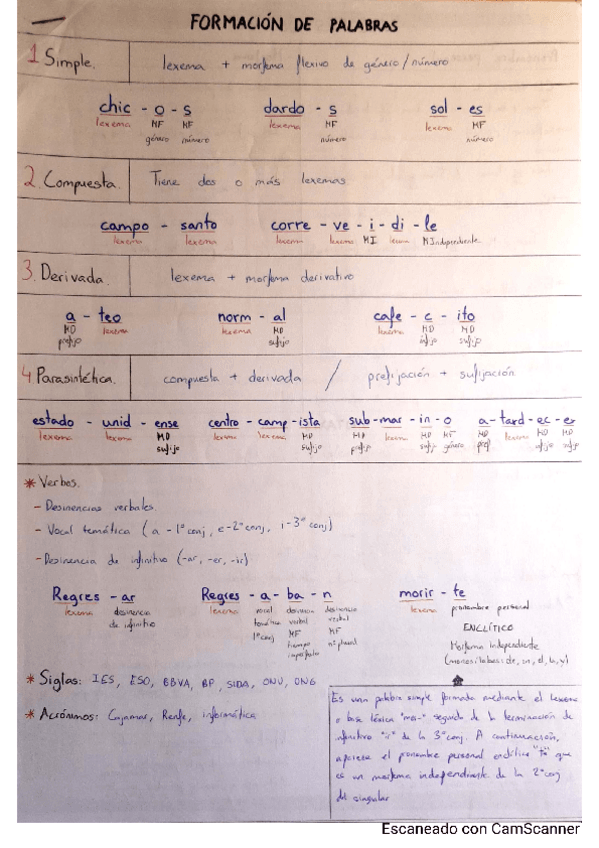 FORMACIÓN DE PALABRAS
1 Simple. lexema + morfema flexivo de género/número
chic - o - s dardo - s sol - es
lexema MF MF lexema MF lexema MF
género número número número
2. Compuesta. Tiene dos o más lexemas
campo - santo corre - ve - i - di - le
lexema lexema lexema lexema MI lexema MIndependiente
3. Derivada. lexema + morfema derivativo
a - teo norm - al cafe - c - ito
MD lexema lexema MD lexema MD MD
prefijo sufijo infijo sufijo
4 Parasintética. compuesta + derivada / prefijación + sufijación
estado - unid - ense centro - camp - ista sub - mar - in - o a - tard - ec - er
lexema lexema MD lexema lexema MD MD lexema MD MF MD lexema MD MD
sufijo sufijo prefijo sufij género pref
* Verbos.
- Desinencias verbales
- Vocal temática (a - 1ª conj, e - 2ª conj, i - 3ª conj)
- Desinencia de infinitivo (-ar, -er, -ir)
Regres - ar Regres - a - ba - n morir - te
lexema desinencia lexema vocal desinencia desinencia lexema pronombre personal
de infinitivo temática verbal verbal
1ª conj MF MF ENCLÍTICO
tiempo nº plural Morfema Independiente
imperfecto (monosílabos: de, un, el, la, y)
* Siglas: IES, ESO, BBVA, BP, SIDA, ONU, ONG
* Acrónimos: Cajamar, Renfe, informática
Es una palabra simple formada mediante el lexema
o base léxica "mor-" seguido de la terminación de
infinitivo "ir" de la 3ª conj. A continuación,
aparece el pronombre personal enclítico "te" que
es un morfema independiente de la 2ª
del singular
Escaneado con CamScanner